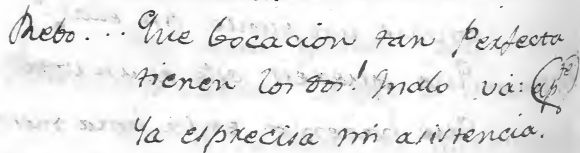 Rebo... Que bocacion tan Perfecta
tienen los dos! Malo vá: (ap.te)
Ya es precisa mi asistencia.